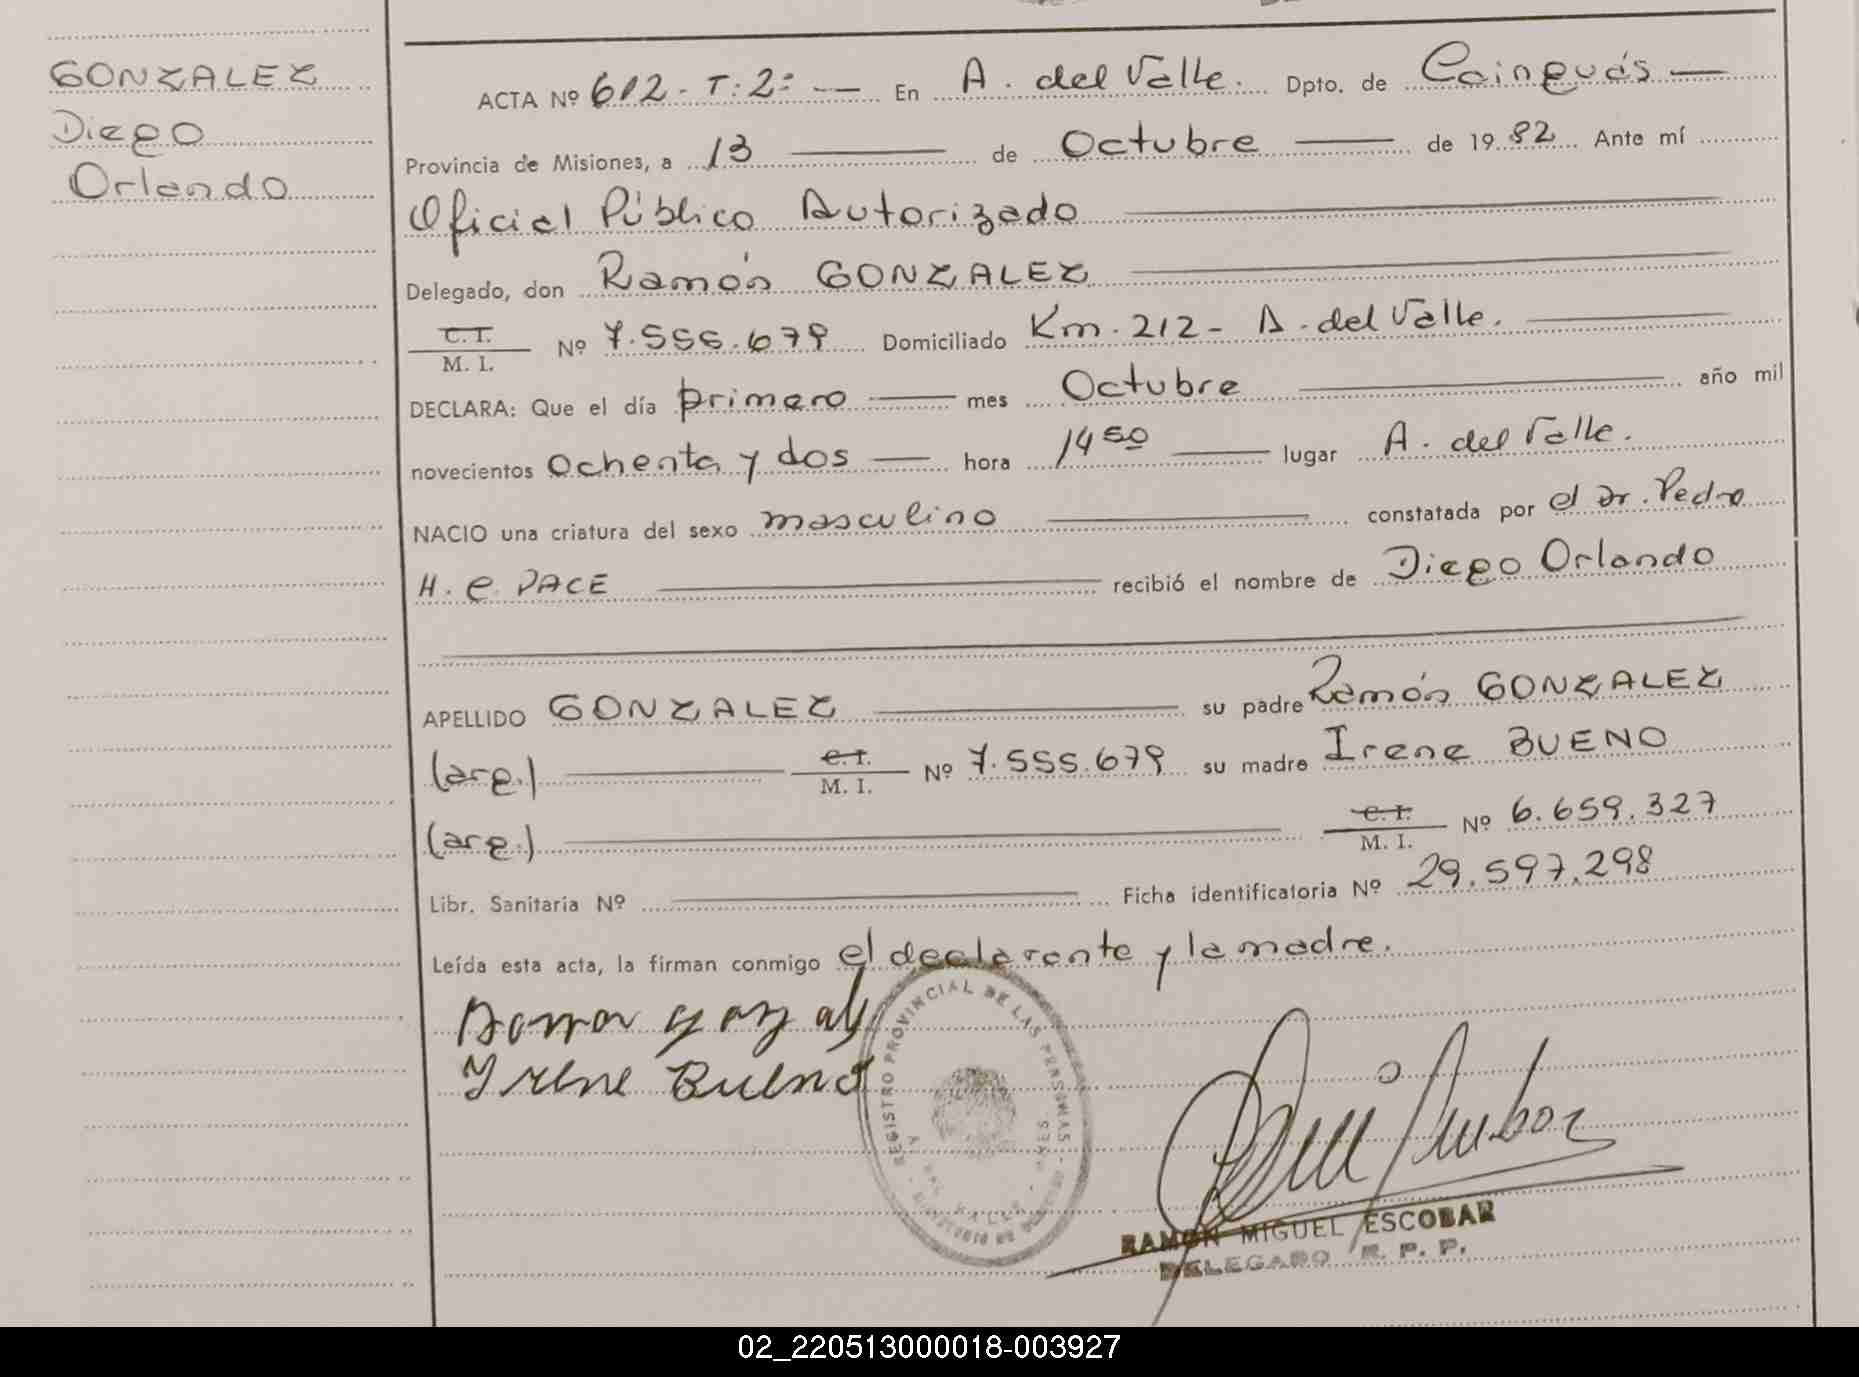 GONZALEZ
Diego
Orlando
ACTA Nº 612 - T: 2º — En A. del Valle. Dpto. de Cainguás —
Provincia de Misiones, a 13 — de Octubre — de 1982 Ante mí
Oficial Público Autorizado
Delegado, don Ramón GONZALEZ
C.I. / M. I. Nº 7.555.679 Domiciliado Km. 212 - A. del Valle.
DECLARA: Que el día primero — mes Octubre — año mil
novecientos ochenta y dos — hora 14 50 — lugar A. del Valle.
NACIO una criatura del sexo masculino — constatada por el Dr. Pedro
H. C. PACE — recibió el nombre de Diego Orlando
APELLIDO GONZALEZ — su padre Ramón GONZALEZ
(arg.) — C.I. / M. I. Nº 7.555.679 su madre Irene BUENO
(arg.) — C.I. / M. I. Nº 6.659.327
Libr. Sanitaria Nº — Ficha identificatoria Nº 29.597.298
Leída esta acta, la firman conmigo el declarante y la madre.
Irene Bueno
REGISTRO PROVINCIAL DE LAS PERSONAS
RAMON MIGUEL ESCOBAR
DELEGADO R. P. P.
02_220513000018-003927